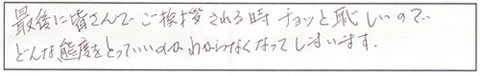 最後に皆さんでご挨拶される時チョッと恥しいので、
どんな態度をとっていいのかわからなくなってしまいます.